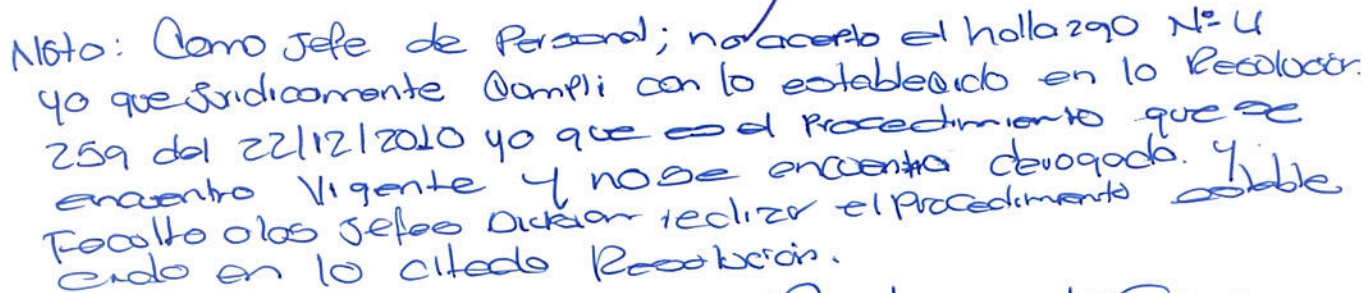 Nota: Como Jefe de Personal; no acepto el hallazgo Nº 4
ya que Juridicamente Cumpli con lo establecido en la Resolución
259 del 22/12/2010 ya que es el Procedimiento que se
encuentra Vigente y no se encuentra derogado. Y
Faculta a los Jefes División realizar el Procedimiento estable
cido en la citada Resolución.